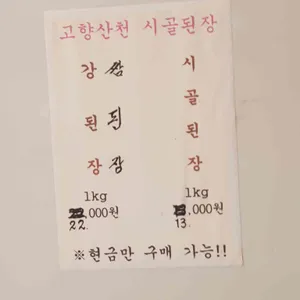 고향산천 시골된장
강된장
쌈된장
시골된장
1kg 1kg
,000원 ,000원
22. 13.
※현금만 구매 가능!!